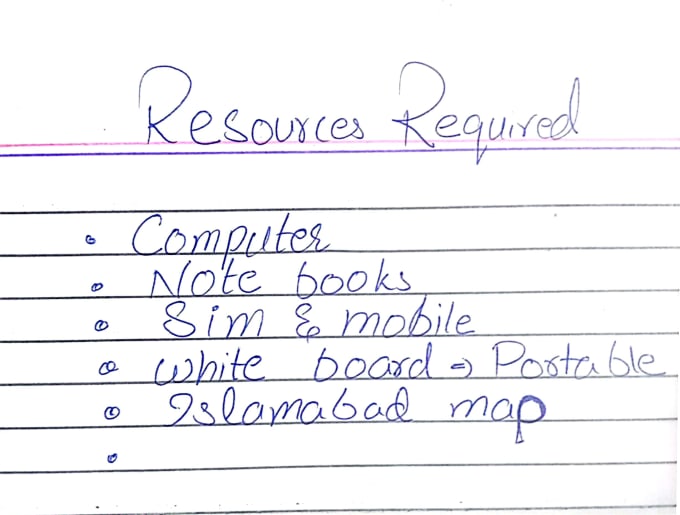 Resources Required
• Computer
• Note books
• Sim & mobile
• White board → Portable
• Islamabad map
•